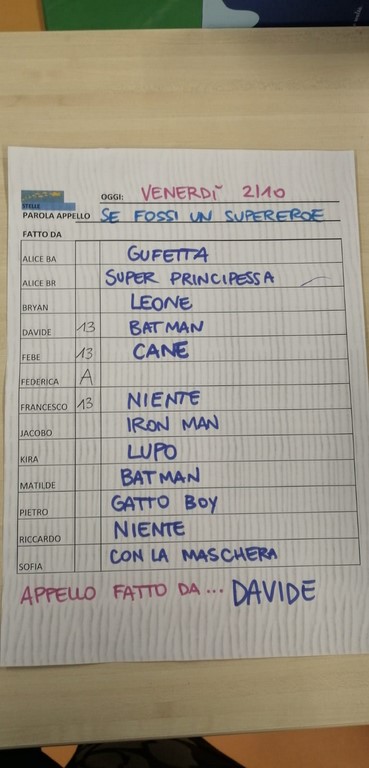 OGGI: VENERDÌ 2/10
STELLE
PAROLA APPELLO SE FOSSI UN SUPEREROE
FATTO DA
ALICE BA GUFETTA
ALICE BR SUPER PRINCIPESSA
BRYAN LEONE
DAVIDE 13 BATMAN
FEBE 13 CANE
FEDERICA A
FRANCESCO 13 NIENTE
JACOBO IRON MAN
KIRA LUPO
MATILDE BATMAN
PIETRO GATTO BOY
RICCARDO NIENTE
SOFIA CON LA MASCHERA
APPELLO FATTO DA... DAVIDE